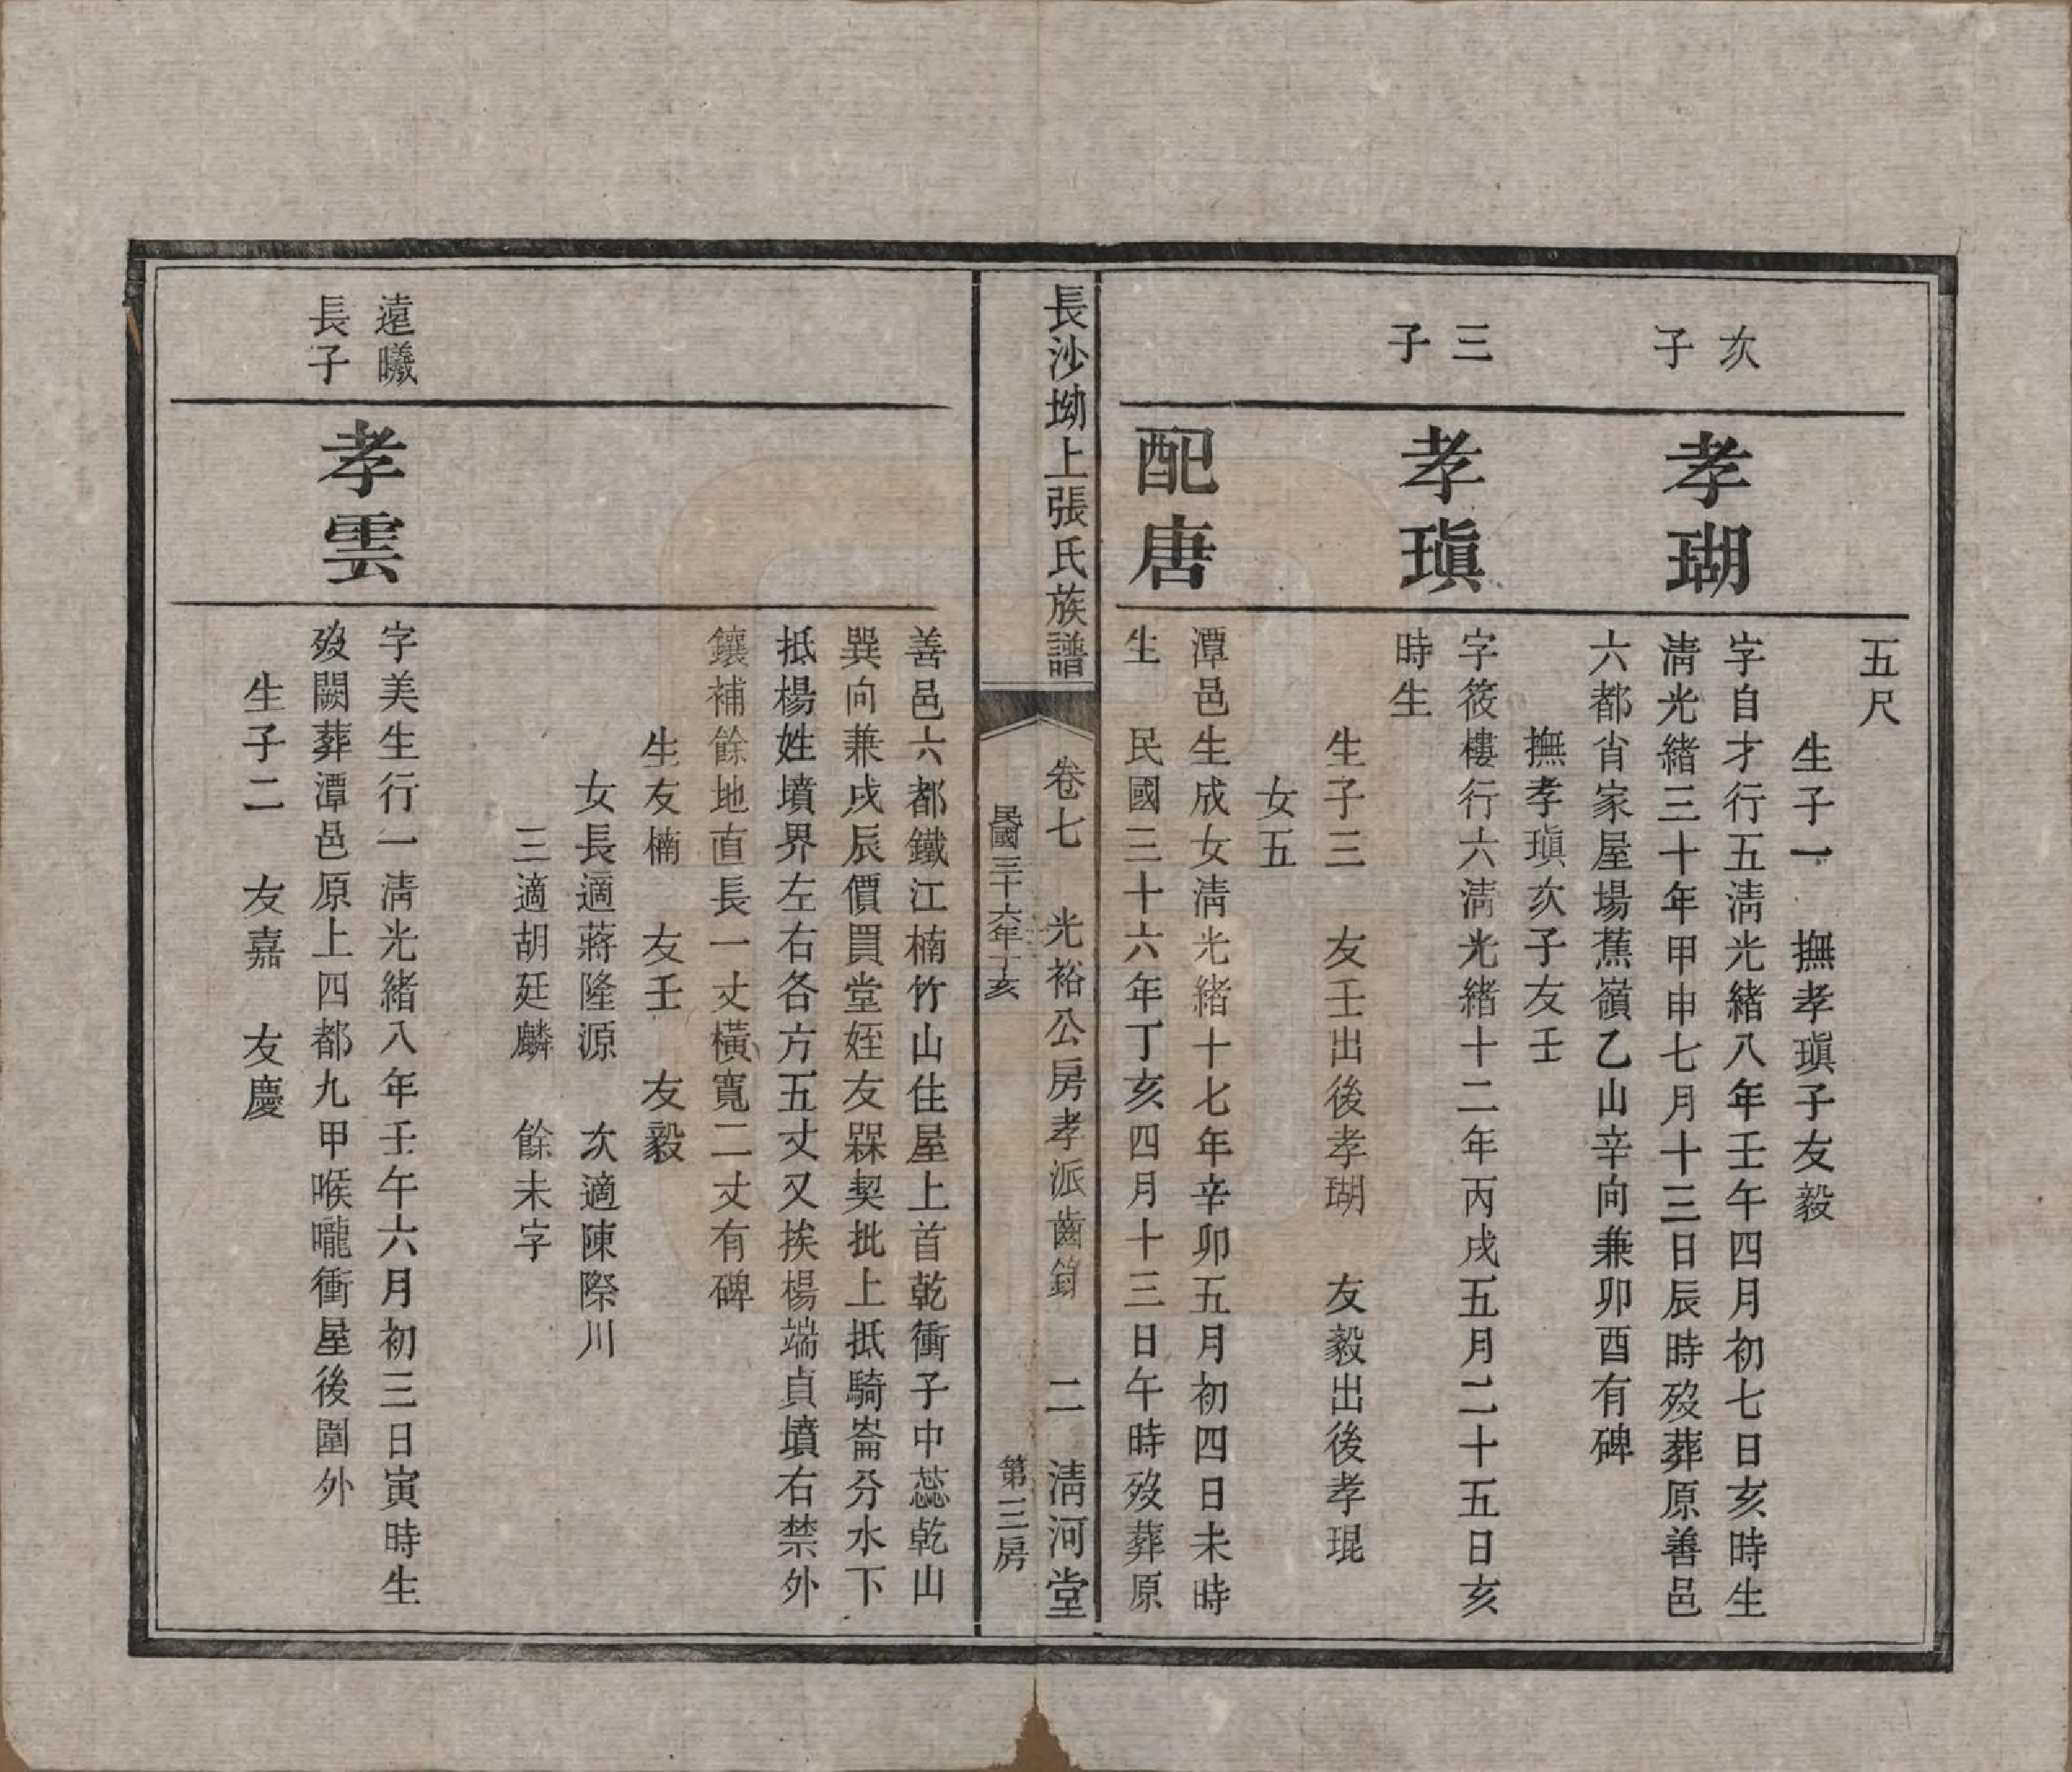 五尺
生子一　撫孝瑱子友毅
次子
孝瑚
字自才行五淸光緒八年壬午四月初七日亥時生
淸光緒三十年甲申七月十三日辰時歿葬原善邑
六都肖家屋場蕉嶺乙山辛向兼卯酉有碑
撫孝瑱次子友壬
三子
孝瑱
字筱樓行六淸光緒十二年丙戌五月二十五日亥
時生
生子三　友壬出後孝瑚　友毅出後孝琨
女五
配唐
潭邑生成女淸光緒十七年辛卯五月初四日未時
生　民國三十六年丁亥四月十三日午時歿葬原
長沙坳上張氏族譜
卷七　光裕公房孝派齒錄　二　淸河堂
民國三十六年丁亥　第三房
善邑六都鐵江楠竹山住屋上首乾衝子中蕊乾山
巽向兼戌辰價買堂姪友槑契批上抵騎崙分水下
抵楊姓墳界左右各方五丈又挨楊端貞墳右禁外
鑲補餘地直長一丈橫寬二丈有碑
生友楠　友壬　友毅
女長適蔣隆源　次適陳際川
三適胡廷麟　餘未字
遠曦
長子
孝雲
字美生行一淸光緒八年壬午六月初三日寅時生
歿闕葬潭邑原上四都九甲喉嚨衝屋後圍外
生子二　友嘉　友慶